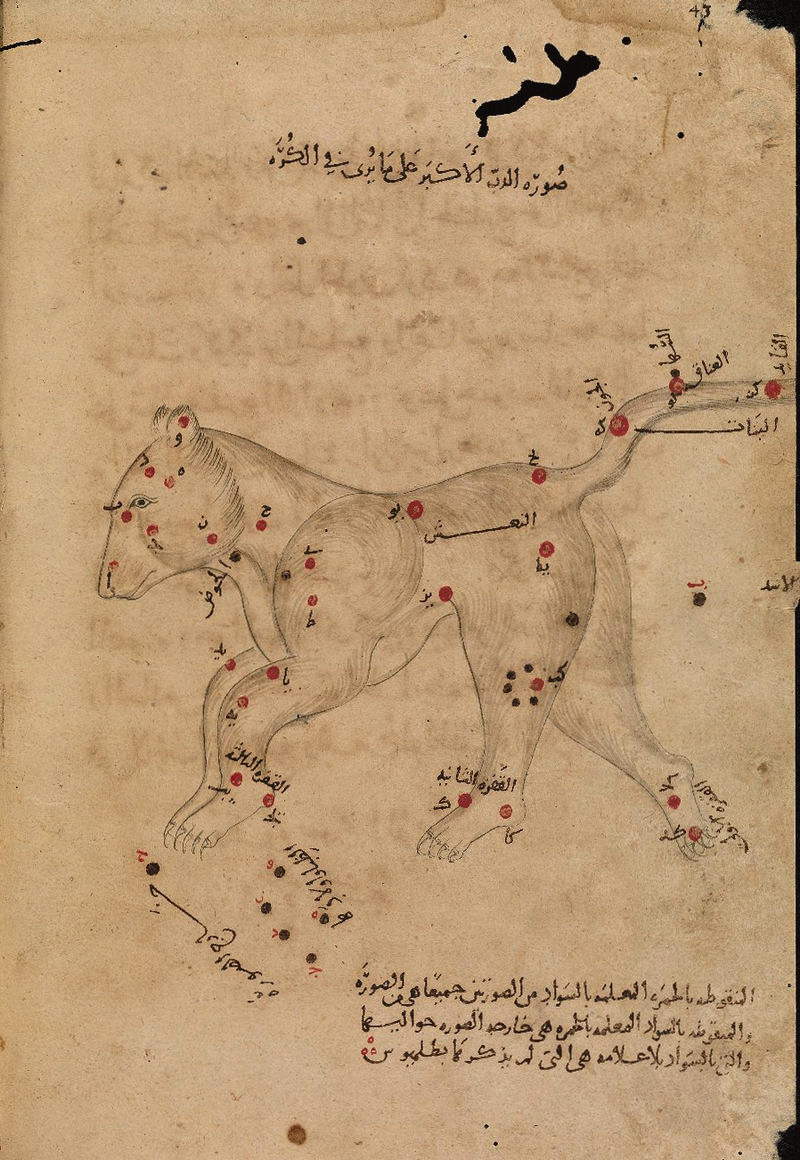 43
صُورَه الدبّ الأَكبَر عَلى مَا يُرى في الكُرَه
السُّها
العناق
القايد
الجون
البنات
النعش
الحوض
الاسد
القفزه الثالثه
القفزه الثانيه
المنقوطه بالحمره المعلمه بالسواد من الصورتين جميعًا هي من الصورَه
والمنقوطه بالسواد المعلمه بالحمره هي خارجه الصوره حواليـــها
والتي بالسواد بلا علامه هي التي لم يذكرها بطلميوس